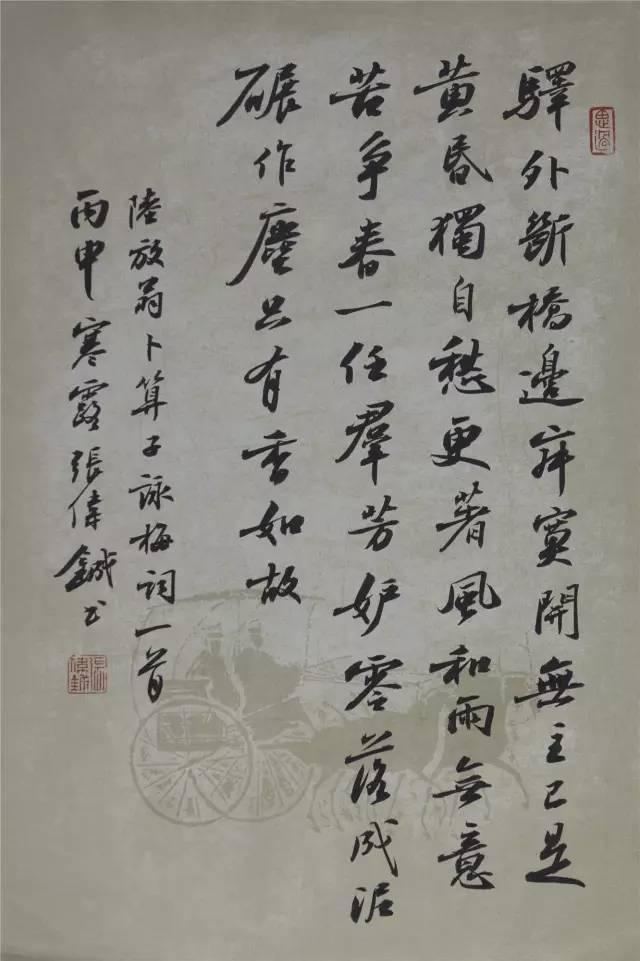 驛外斷橋邊寂寞開無主已是
黄昏獨自愁更著風和雨無意
苦爭春一任羣芳妒零落成泥
碾作塵只有香如故
陸放翁卜算子詠梅詞一首
丙申寒露張偉鋮书